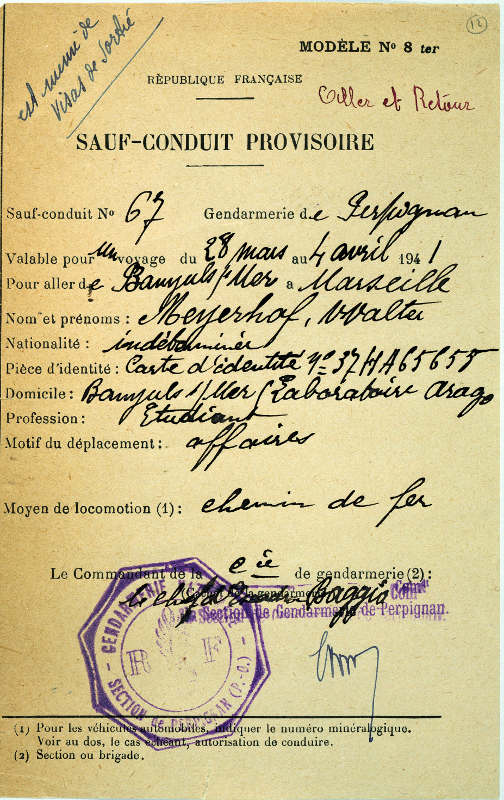 12
est muni de
visas de sortie
MODÈLE No 8 ter
RÉPUBLIQUE FRANÇAISE
Aller et Retour
SAUF-CONDUIT PROVISOIRE
Sauf-conduit No 67 Gendarmerie de Perpignan
Valable pour un voyage du 28 mars au 4 avril 1941
Pour aller de Banyuls s/ Mer a Marseille
Nom et prénoms : Meyerhof, Walter
Nationalité : indéterminée
Pièce d'identité : Carte d'identité No 37HA65655
Domicile : Banyuls s/ Mer Laboratoire Arago
Profession : Etudiant
Motif du déplacement : affaires
Moyen de locomotion (1) : chemin de fer
Le Commandant de la Cie de gendarmerie (2) :
la Section de Gendarmerie de Perpignan.
GENDARMERIE
R F
SECTION de PERPIGNAN (P.-O.)
(1) Pour les véhicules automobiles, indiquer le numéro minéralogique.
Voir au dos, le cas échéant, autorisation de conduire.
(2) Section ou brigade.